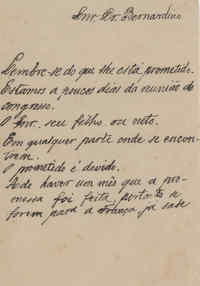 Snr. Dr. Bernardino
Lembre-se do que lhe está promettido.
Estamos a poucos dias da reunião do
congresso.
O Snr. seu filho ou neto.
Em qualquer parte onde se encon-
trem.
O promettido é devido.
Hade haver um mês que a pro-
messa foi feita, portanto se
forem para a França já sabe